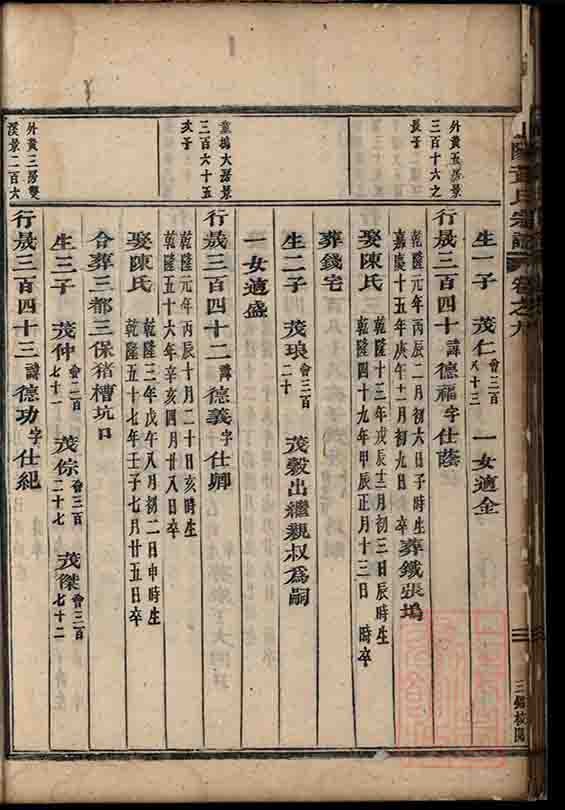 卷之九
外黃五房景
三百十六之
長子
生一子 茂仁 會三百八十三 一女適金
行晟三百四十 諱德福字仕蔭
乾隆元年丙辰二月初六日子時生
嘉慶十五年庚午十二月初九日 卒 葬鐵張塢
娶陳氏 乾隆十三年戊辰十二月初三日辰時生
乾隆四十九年甲辰正月十三日 時卒
葬錢宅
生二子 茂琅 會三百二十 茂穀出繼親叔爲嗣
一女適盛
大房景
三百六十五
次子
行晟三百四十二 諱德義字仕卿
乾隆元年丙辰十月二十日亥時生
乾隆五十六年辛亥四月廿八日卒
娶陳氏 乾隆三年戊午八月初二日申時生
乾隆五十七年壬子七月廿五日卒
合葬三都三保猪槽坑口
生三子 茂仲 會二百七十二 茂倧 會三百二十七 茂傑 會三百七十二
外黃三房雙
溪景二百六
行晟三百四十三 諱德功字仕紀